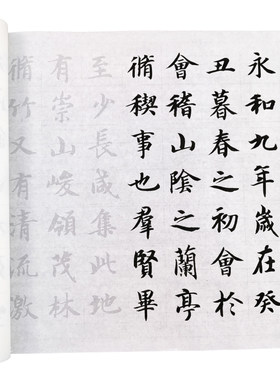 永和九年歲在癸
丑暮春之初會於
會稽山陰之蘭亭
脩稧事也羣賢畢
至少長咸集此地
有崇山峻領茂林
脩竹又有清流激